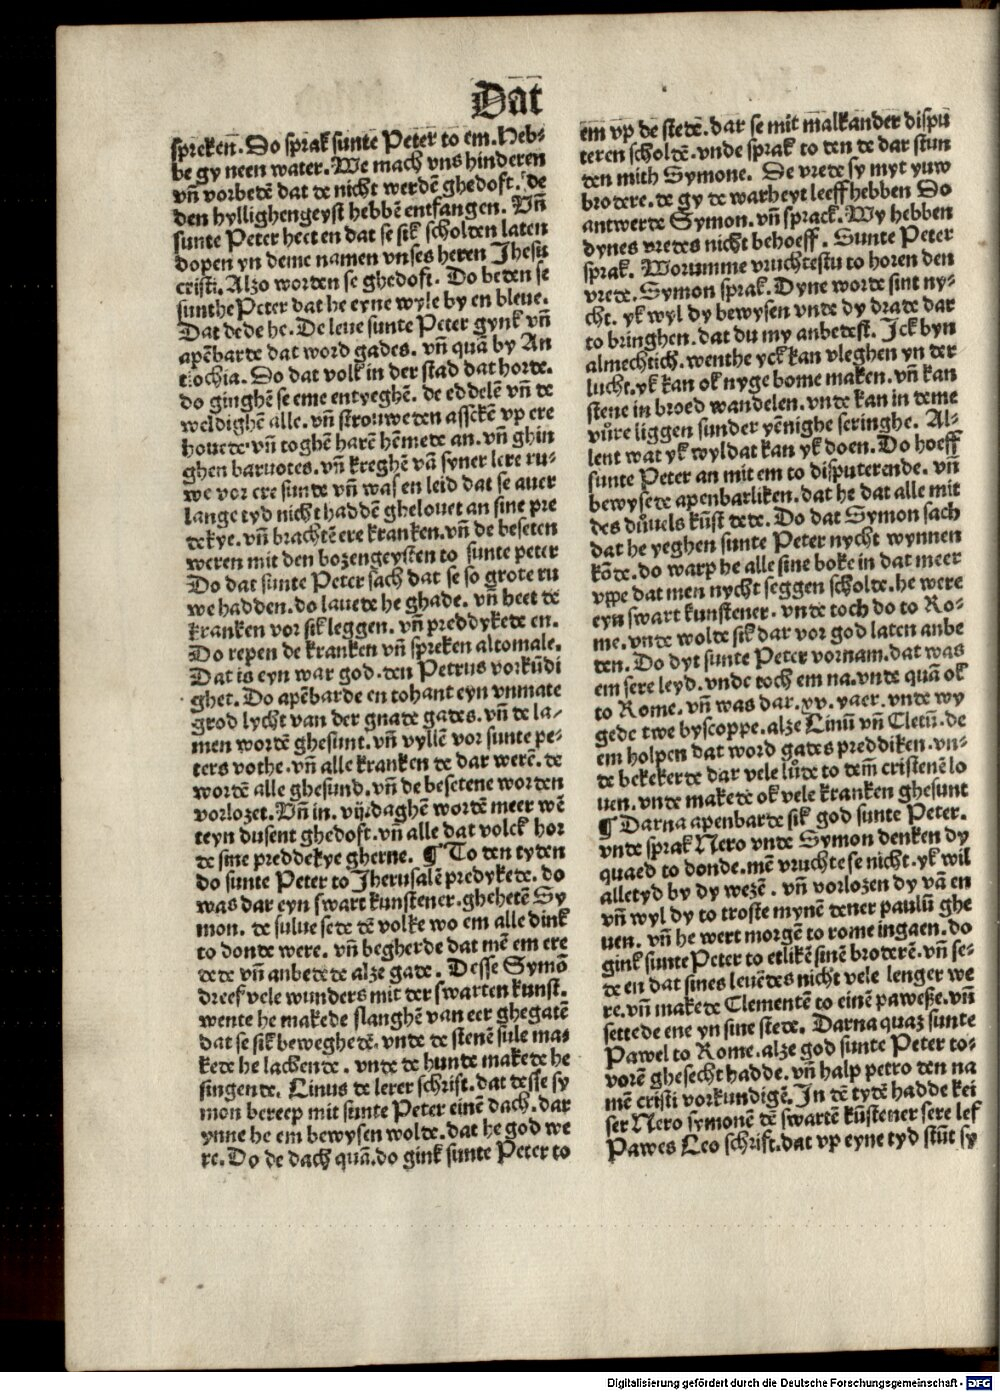 Dat
spreken. Do sprak sunte Peter to em. Heb-
be gy neen water. We mach vns hinderen
vn̄ vorbedē dat de nicht werdē ghedoft. de
den hyllighengeyst hebbē entfangen. Vn̄
sunte Peter heet en dat se sik scholden laten
dopen yn deme namen vnses heren Jhesu
cristi. Alzo worden se ghedoft. Do beden se
sunthe Peter dat he eyne wyle by en bleue.
Dat dede he. De leue sunte Peter gynk vn̄
apēbarde dat word gades. vn̄ quā by An
tiochia. Do dat volk in der stad dat horde.
do ginghē se eme entyeghē. de eddelē vn̄ de
weldighē alle. vn̄ strouweden asschē vp ere
houede. vn̄ toghē harē hēmede an. vn̄ ghin
ghen baruotes. vn̄ kreghē vā syner lere ru-
we vor ere sunde vn̄ was en leid dat se auer
lange tyd nicht haddē ghelouet an sine pre
dekye. vn̄ brachtē ere kranken. vn̄ de beseten
weren mit den bozengeysten to sunte peter
Do dat sunte Peter sach dat se so grote ru
we hadden. do lauede he ghade. vn̄ heet de
kranken vor sik leggen. vn̄ preddykede en.
Do repen de kranken vn̄ spreken altomale.
Dat is eyn war god. den Petrus vorkūdi
ghet. Do apēbarde en tohant eyn vnmate
grod lycht van der gnade gades. vn̄ de la-
men wordē ghesunt. vn̄ vyllē vor sunte pe-
ters vothe. vn̄ alle kranken de dar werē. de
wordē alle ghesund. vn̄ de besetene worden
vorlozet. Vn̄ in. vij. daghē wordē meer wē
teyn dusent ghedoft. vn̄ alle dat volck hor
de sine preddekye gherne. ¶ To den tyden
do sunte Peter to Jherusalē predykede. do
was dar eyn swart kunstener. ghehetē Sy
mon. de sulue sede dē volke wo em alle dink
to donde were. vn̄ begherde dat mē em ere
dede vn̄ anbedede alze gade. Desse Symō
dreef vele wunders mit der swarten kunst.
wente he makede slanghē van eer ghegatē
dat se sik beweghedē. vnde de stenē sule ma-
kede he lachende. vnde de hunde makede he
singende. Linus de lerer schrift. dat desse sy
mon bereep mit sunte Peter einē dach. dar
ynne he em bewysen wolde. dat he god we
re. Do de dach quā. do gink sunte Peter to
em vp de stede. dar se mit malkander dispu
teren scholdē. vnde sprak to den de dar stun
den mith Symone. De vrede sy myt yuw
brodere. de gy de warheyt leeff hebben Do
antwerde Symon. vn̄ sprack. Wy hebben
dynes vredes nicht behoeff. Sunte Peter
sprak. Worumme vruchtestu to horen den
vrede. Symon sprak. Dyne worde sint ny-
cht. yk wyl dy bewysen vnde dy drade dar
to bringhen. dat du my anbedest. Ick byn
almechtich. wenthe yck kan vleghen yn der
lucht. yk kan ok nyge bome maken. vn̄ kan
stene in broed wandelen. vnde kan in deme
vůre liggen sunder yēnighe seringhe. Al-
lent wat yk wyl dat kan yk doen. Do hoeff
sunte Peter an mit em to disputerende. vn̄
bewysede apenbarliken. dat he dat alle mit
des důuels kūst dede. Do dat Symon sach
dat he yeghen sunte Peter nycht wynnen
kōde. do warp he alle sine boke in dat meer
vppe dat men nycht seggen scholde. he were
eyn swart kunstener. vnde toch do to Ro-
me. vnde wolde sik dar vor god laten anbe
den. Do dyt sunte Peter vornam. dat was
em sere leyd. vnde toch em na. vnde quā ok
to Rome. vn̄ was dar. xv. yaer. vnde wy
gede twe byscoppe. alze Linū vn̄ Cletū. de
em holpen dat word gades preddiken. vn-
de bekekerde dar vele lůde to dem̄ cristenē lo
uen. vnde makede ok vele kranken ghesunt
¶ Darna apenbarde sik god sunte Peter.
vnde sprak Nero vnde Symon denken dy
quaed to donde. mē vruchte se nicht. yk wil
alletyd by dy wezē. vn̄ vorlozen dy vā en
vn̄ wyl dy to troste mynē dener paulū ghe
uen. vn̄ he wert morgē to rome ingaen. do
gink sunte Peter to etlikē sinē broderē. vn̄ se-
de en dat sines leuēdes nicht vele lenger we
re. vn̄ makede Clementē to einē paweße. vn̄
settede ene yn sine stede. Darna quaz sunte
Pawel to Rome. alze god sunte Peter to-
vorē ghesecht hadde. vn̄ halp petro den na
mē cristi vorkundigē. In dē tydē hadde kei
ser Nero symonē dē swartē kūstener sere lef
Pawes Leo schrift. dat vp eyne tyd stūt sy
Digitalisierung gefördert durch die Deutsche Forschungsgemeinschaft - DFG